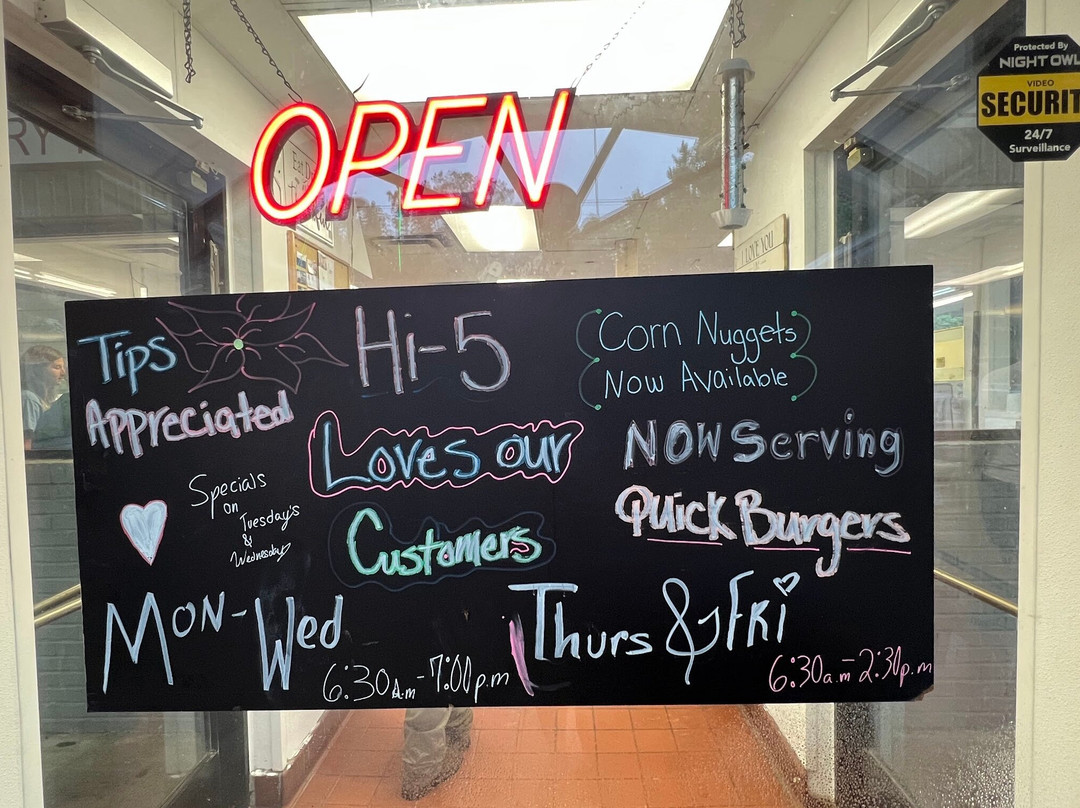 OPEN
Protected By
NIGHT OWL
VIDEO
SECURIT
24/7
Surveillance
RY
I LOVE YOU
Tips
Appreciated
Hi-5
Loves our
Customers
Corn Nuggets
Now Available
NOW Serving
Quick Burgers
Specials
on
Tuesday's
&
Wednesday
Mon-Wed
6:30a.m-7:00p.m
Thurs & Fri
6:30a.m-2:30p.m